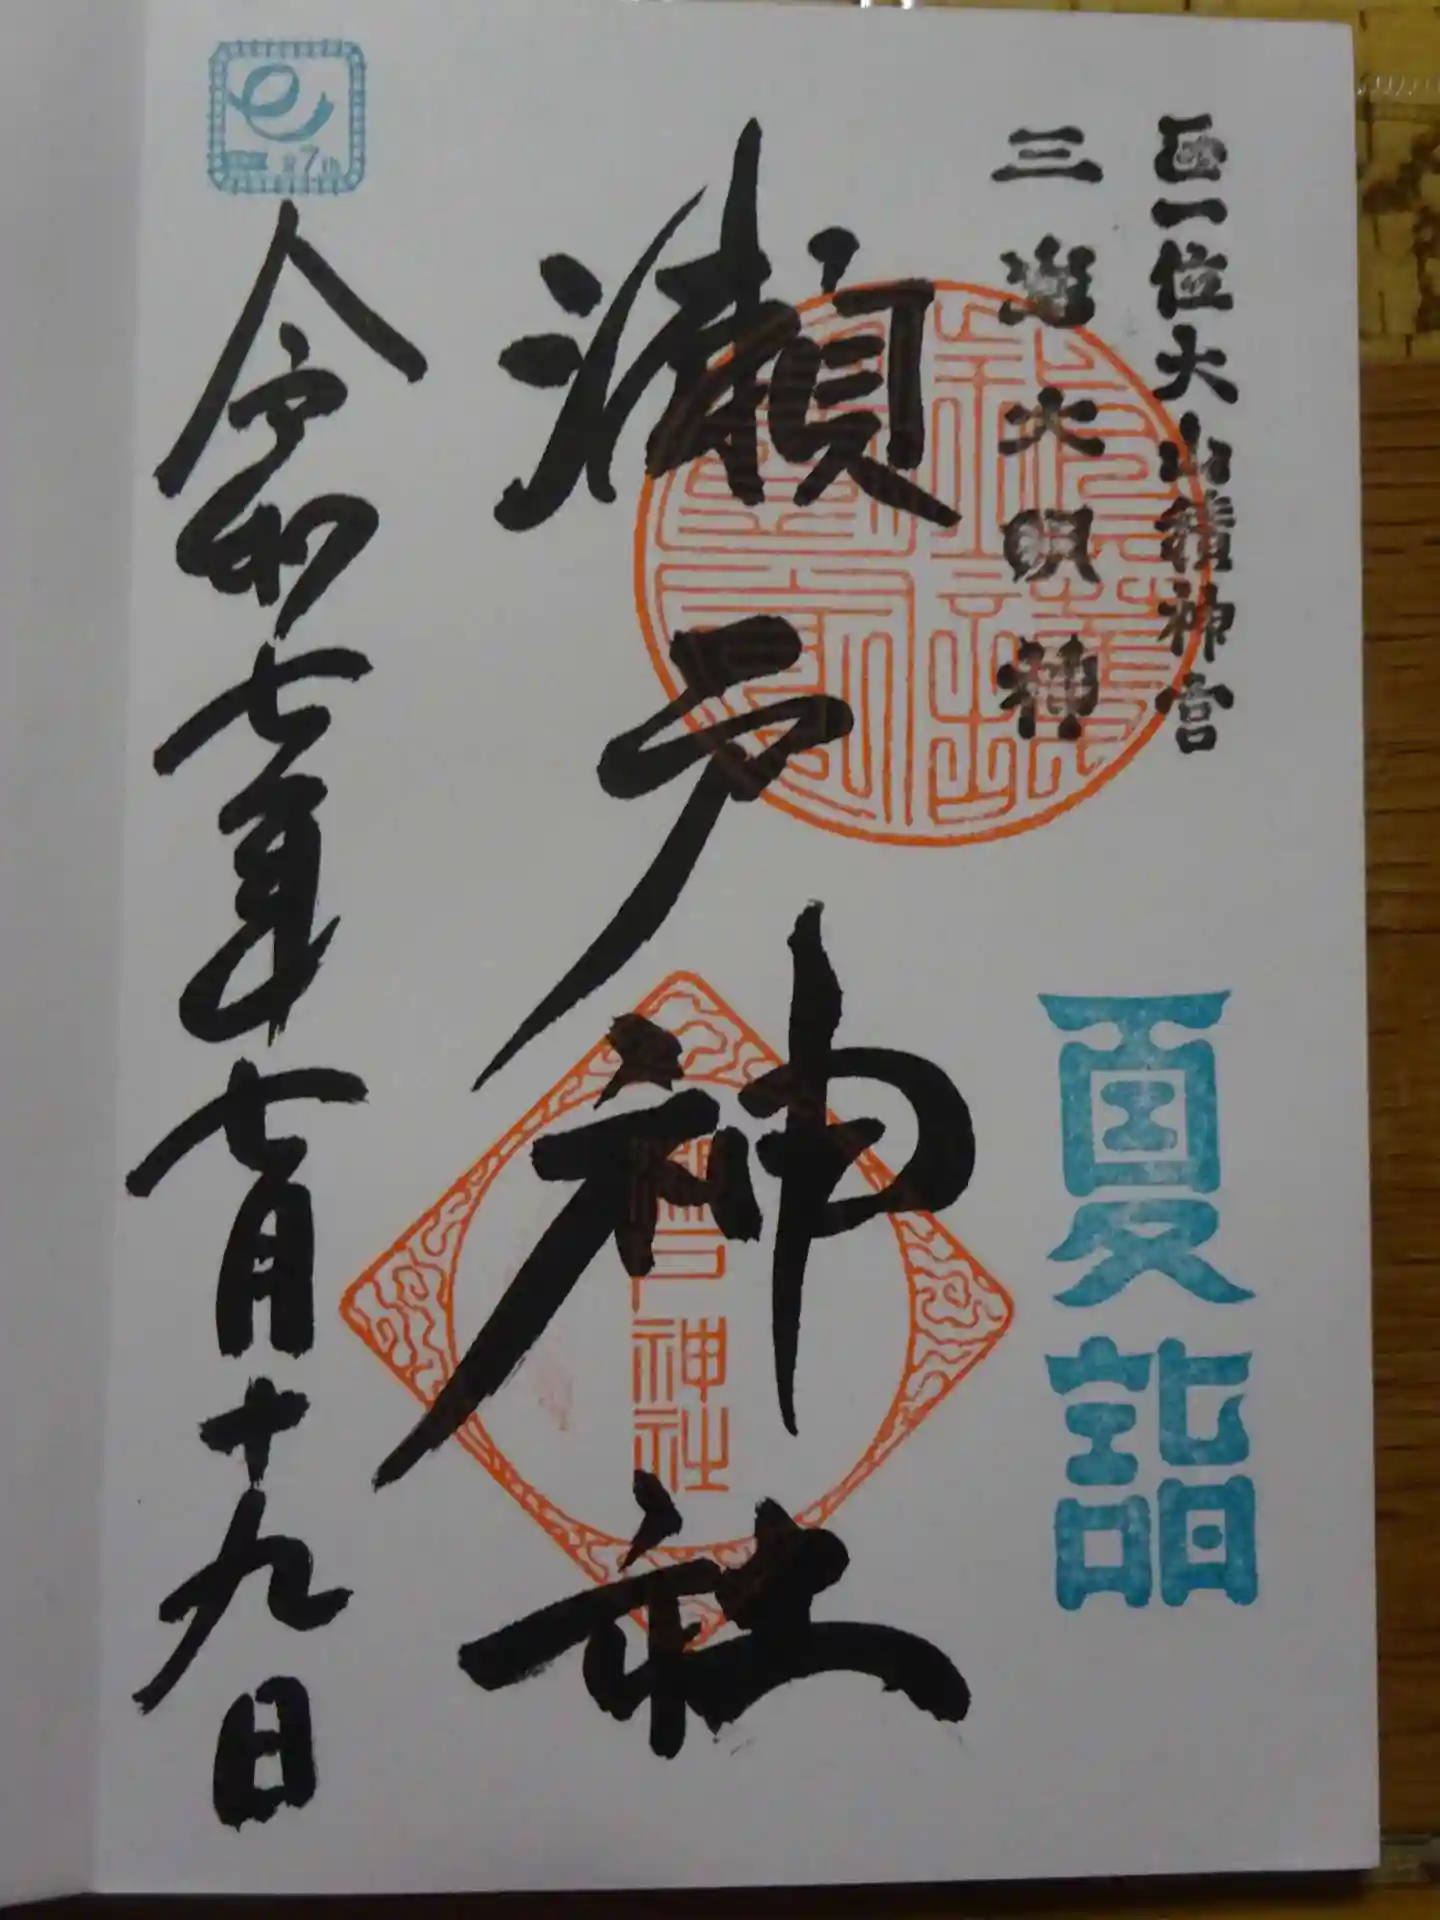 正一位大山積神宮
三嶌大明神
夏詣
瀬戸神社
瀬戸神社
令和七年七月十九日